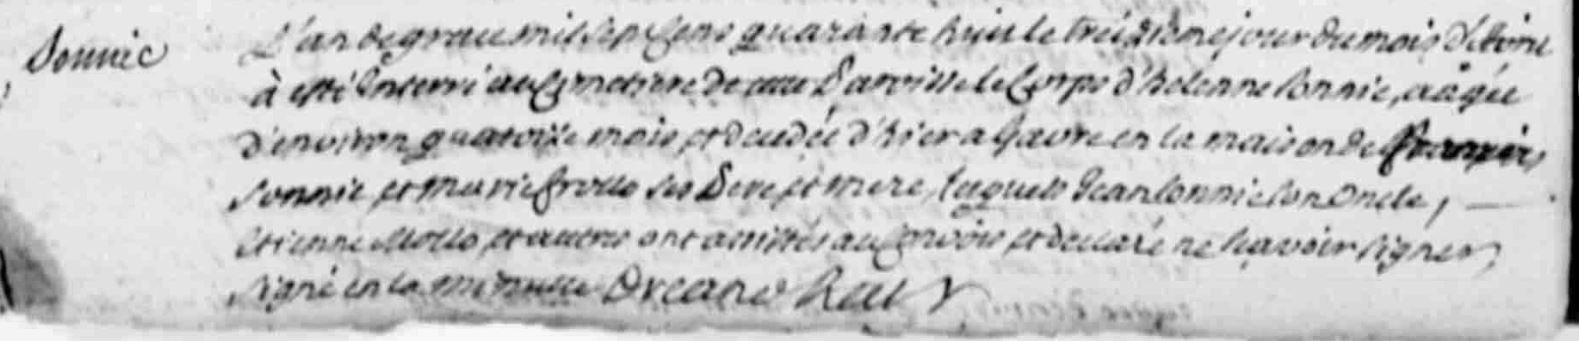 Sonnic
L'an de grace mil sept cens quarante huit le treizieme jour du mois d'Avril
à esté Interré au Cimetiere de cette Paroisse le Corps d'helenne Sonnic, aagée
d'environ quatorze mois et decedée d'hier a Gavre en la maison de François
Sonnic et Marie Frollo ses Pere et mere, lesquels Jean Sonnic son Oncle,
Etienne Mollo et autres ont assistés au Convois et declaré ne sçavoir signer,
signé en la minutte